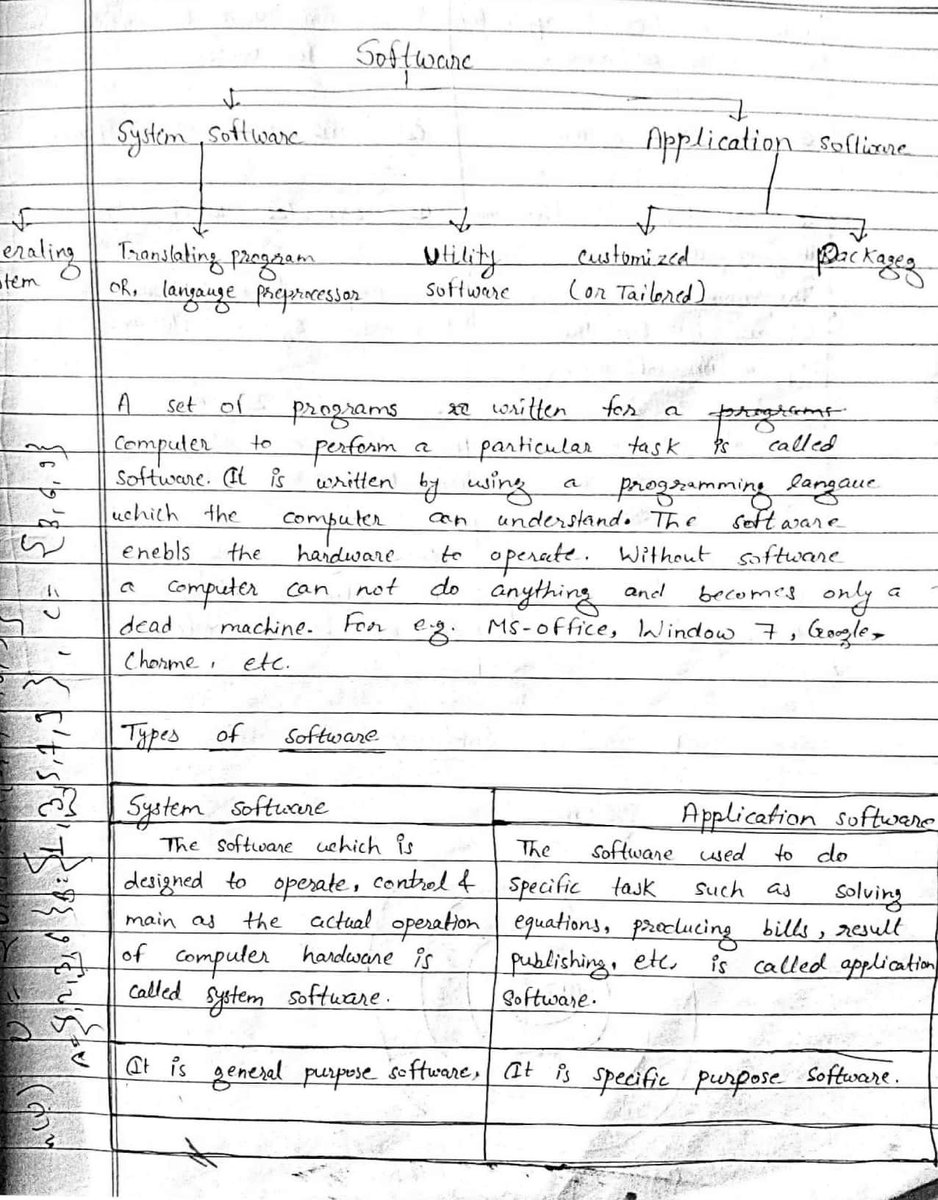 Software
System software Application software
erating Translating program Utility customized Packageg
tem OR, langauge preprocessor software (or Tailored)
A set of programs written for a programs
computer to perform a particular task is called
software. It is written by using a programming langaue
which the computer can understand. The software
enebls the hardware to operate. Without software
a computer can not do anything and becomes only a
dead machine. For e.g. MS-office, Window 7, Google
Chorme, etc.
Types of software
System software Application software
The software which is
designed to operate, control &
main as the actual operation
of computer hardware is
called system software.
The software used to do
specific task such as solving
equations, producing bills, result
publishing, etc. is called application
software.
It is general purpose software,
It is specific purpose software.